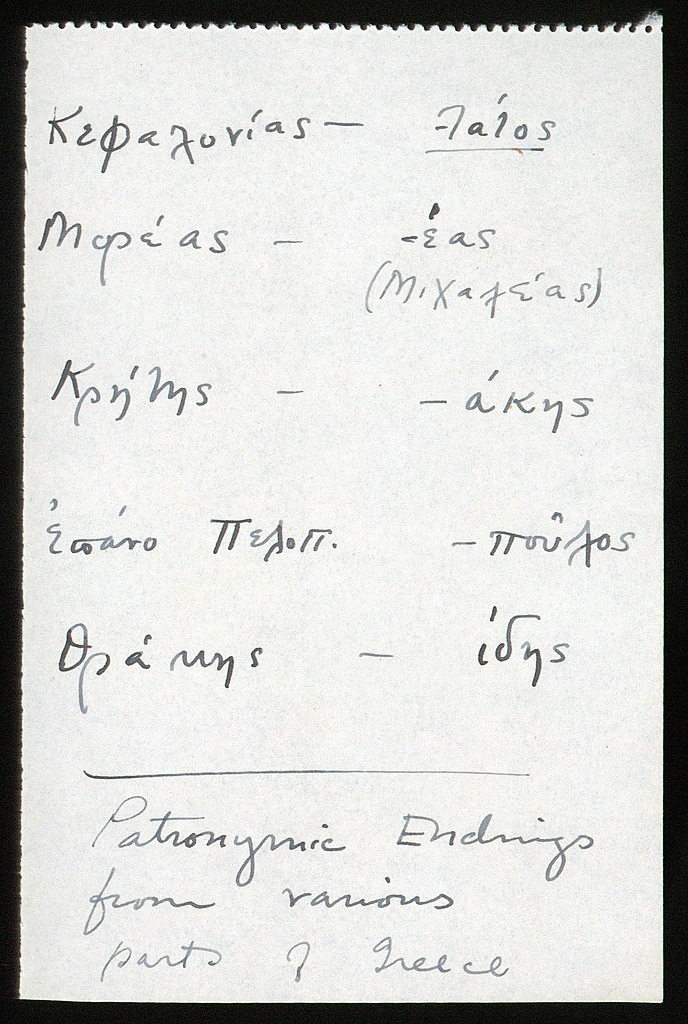 Κεφαλονίας — -ᾶτος
Μορέας — -έας
(Μιχαλέας)
Κρήτης — -άκης
ἐπάνο Πελοπ. -ποῦλος
Θράκης — ίδης
Patronymic Endings
from various
parts of Greece